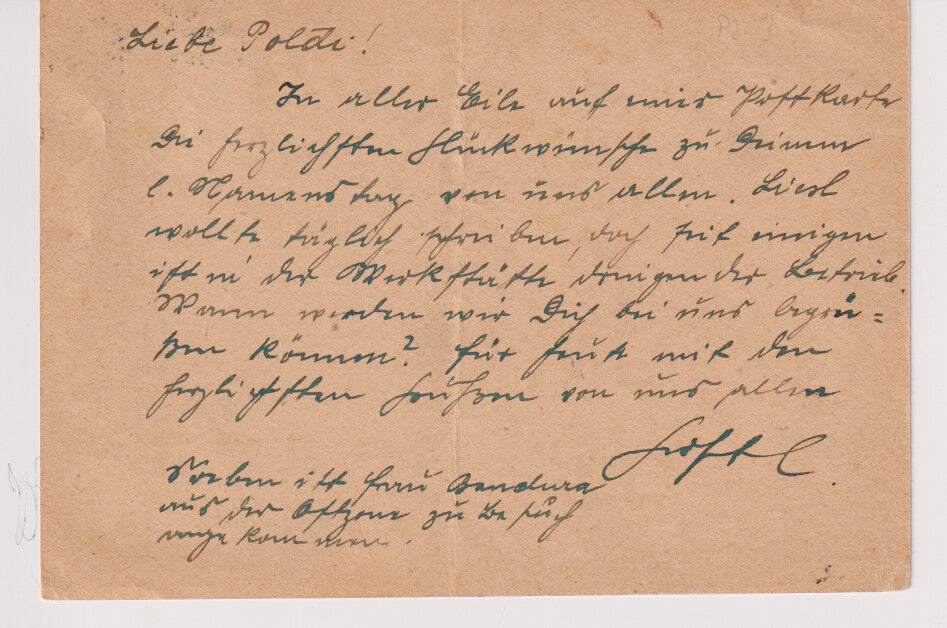 Liebe Poldi!
In aller Eile auf einer Postkarte
die herzlichsten Glückwünsche zu Deinem
l. Namenstag von uns allen. Liesl
wollte täglich schreiben, doch seit einigen
ist in der Werkstätte Betrieb.
Wann werden wir Dich bei uns begrü=
ßen können? Für heute mit den
herzlichsten Grüßen von uns allen
Soeben ist Frau
aus der Ostzone zu Besuch
angekommen.